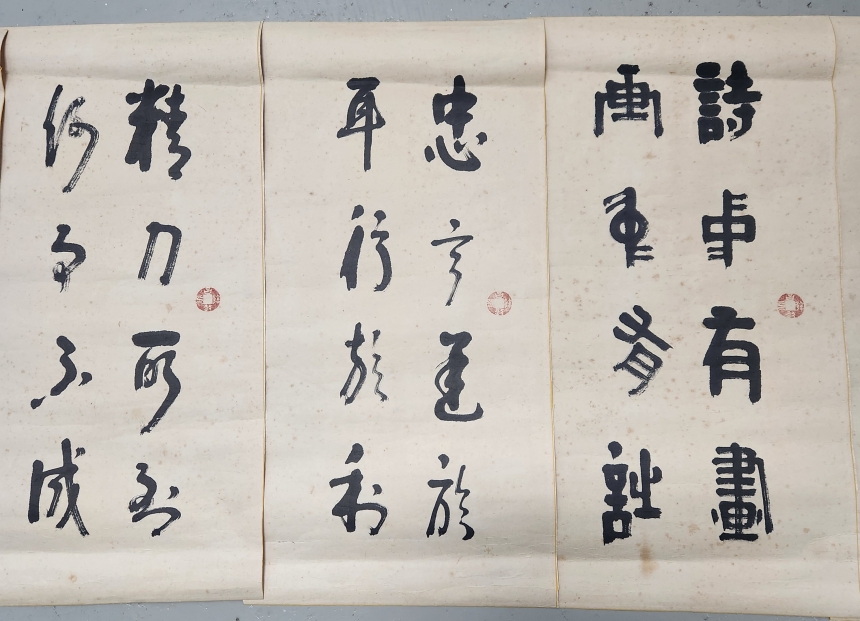 詩中有畫
畫中有詩
忠言逆於
耳行於利
精力所到
何事不成